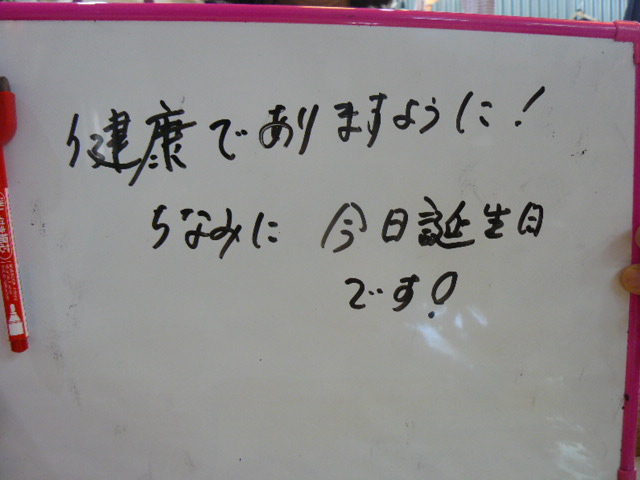 健康でありますように!
ちなみに 今日誕生日
です!